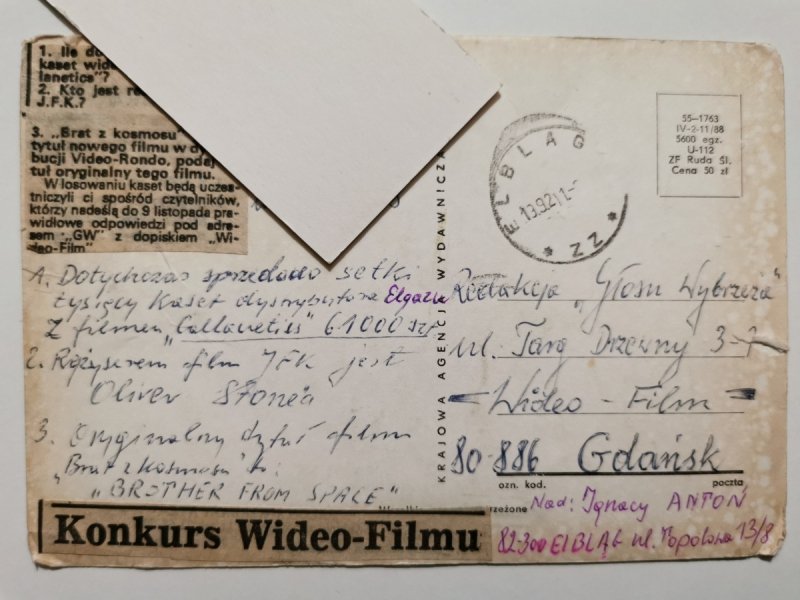 1. Ile do
kaset wid
lanetics"?
2. Kto jest re
J.F.K.?
3. „Brat z kosmosu"
tytuł nowego filmu w dy
bucji Video-Rondo, podaj
tuł oryginalny tego filmu.
W losowaniu kaset będą uczes-
tniczyli ci spośród czytelników,
którzy nadeślą do 9 listopada pra-
widłowe odpowiedzi pod adre-
sem „GW" z dopiskiem „Wi-
deo-Film"
1. Dotychczas sprzedado setki
tysięcy kaset dystrybutora Elgaza
Z filmem „Callanetics" 61000 szt
2. Reżyserem film JFK jest
Oliver Stonea
3. Oryginalny tytuł filmu
„Brat z kosmosu" to:
„BROTHER FROM SPACE"
Konkurs Wideo-Filmu
KRAJOWA AGENCJA WYDAWNICZA
ELBLĄG
13.92
ZZ
55—1763
IV-2-11/88
5600 egz.
U-112
ZF Ruda Śl.
Cena 50 zł
Redakcja „Głosu Wybrzeża"
ul. Targ Drzewny 3-7
– Wideo - Film –
80-886 Gdańsk
ozn. kod. poczta
rzeżone
Nad: Ignacy ANTOŃ
82-300 ElBLĄG ul. Topolowa 13/8